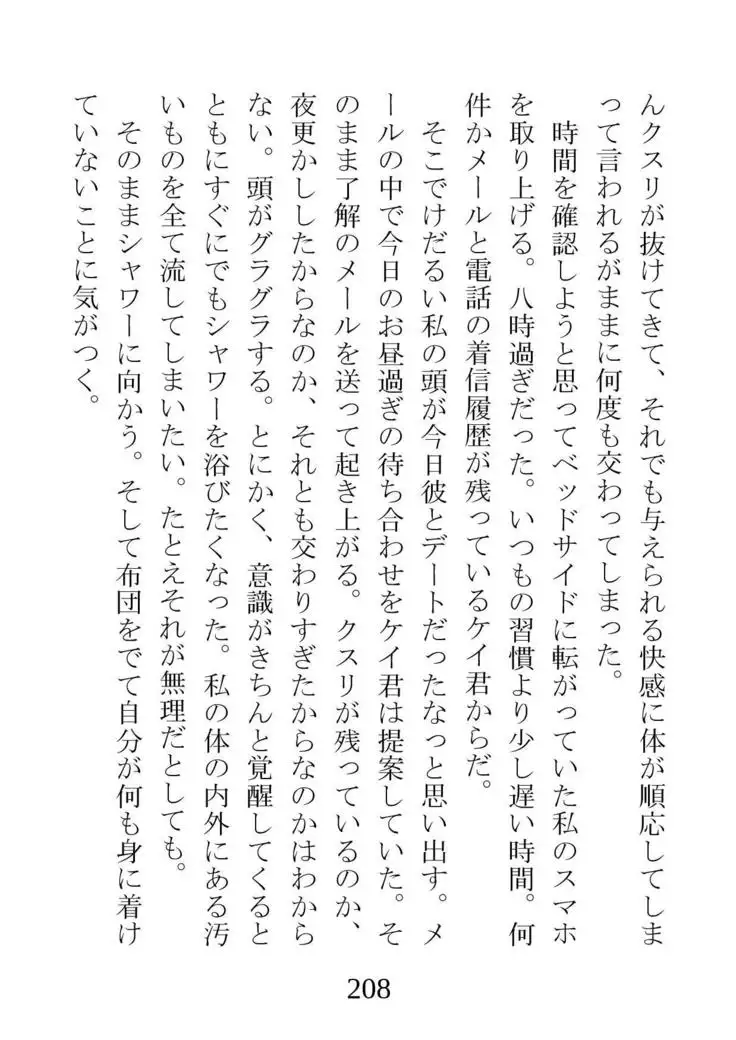 んクスリが抜けてきて、それでも与えられる快感に体が順応してしま
って言われるがままに何度も交わってしまった。
時間を確認しようと思ってベッドサイドに転がっていた私のスマホ
を取り上げる。八時過ぎだった。いつもの習慣より少し遅い時間。何
件かメールと電話の着信履歴が残っているケイ君からだ。
そこでけだるい私の頭が今日彼とデートだったなっと思い出す。メ
ールの中で今日のお昼過ぎの待ち合わせをケイ君は提案していた。そ
のまま了解のメールを送って起き上がる。クスリが残っているのか、
夜更かししたからなのか、それとも交わりすぎたからなのかはわから
ない。頭がグラグラする。とにかく、意識がきちんと覚醒してくると
ともにすぐにでもシャワーを浴びたくなった。私の体の内外にある汚
いものを全て流してしまいたい。たとえそれが無理だとしても。
そのままシャワーに向かう。そして布団をでて自分が何も身に着け
ていないことに気がつく。
208